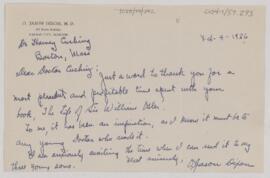 O. JASON DIXON, M. D.
KANSAS CITY, MISSOURI
Dr Harvey Cushing
Boston, Mass
Dear Doctor Cushing:
Just a word to thank you for a
most pleasant and profitable time spent with your
book, The Life of Sir William Osler.
To me it has been an inspiration, as I know it must be to
any young Doctor who reads it.
I am anxiously awaiting the time when I can read it to my
three young sons.
Most sincerely,
O Jason Dixon